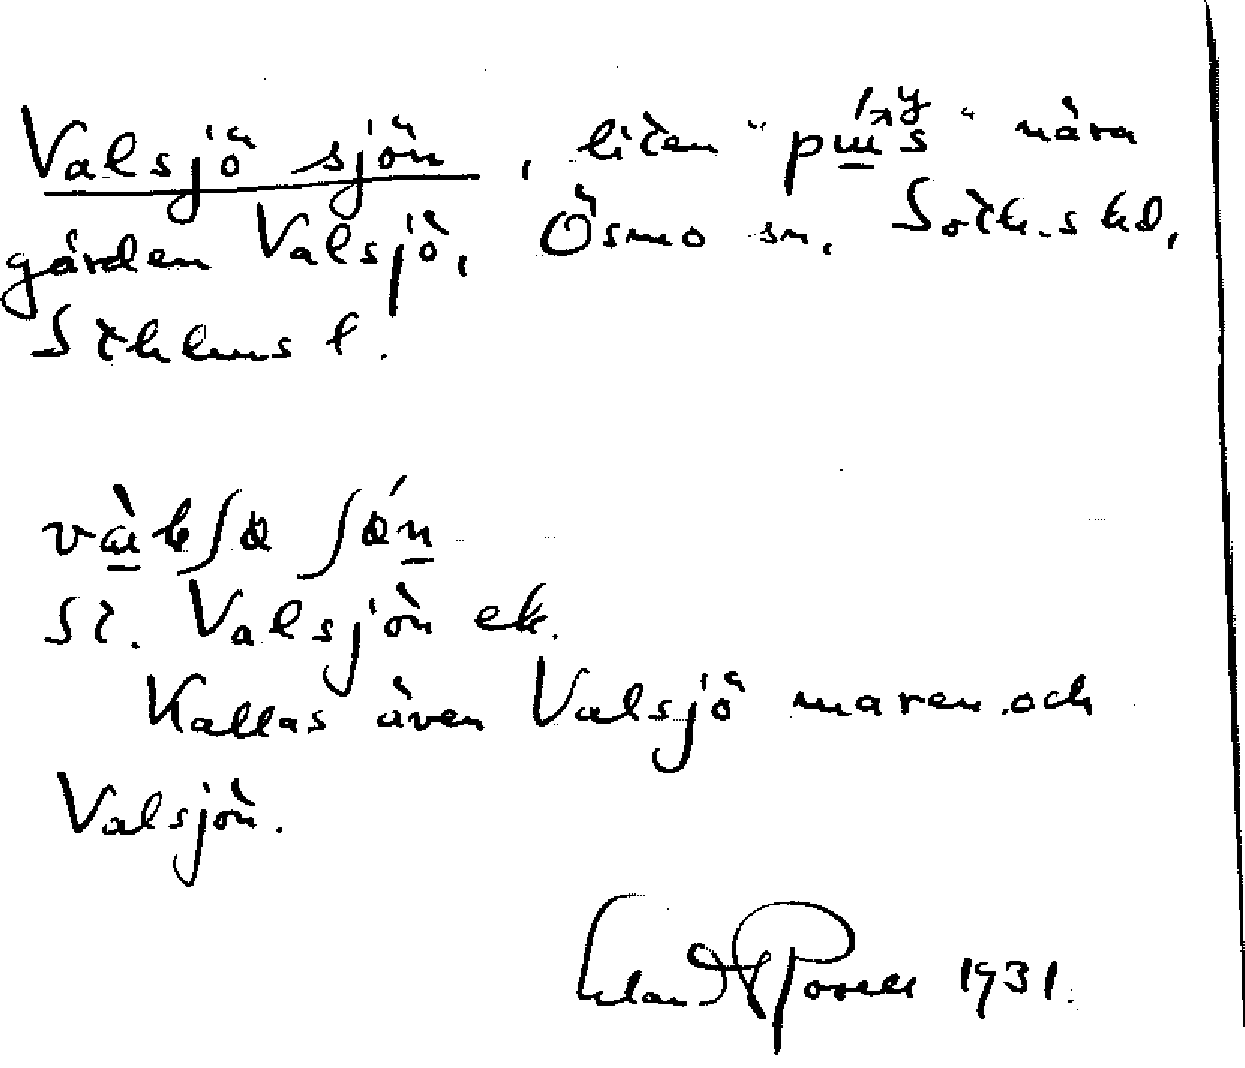 Valsjö sjön, liten "puss" nära
gården Valsjö, Ösmo sn, Soth. hd,
Sthlms l.
St. Valsjön ek.
Kallas även Valsjö maren och
Valsjön.
Erland Rosell 1931.